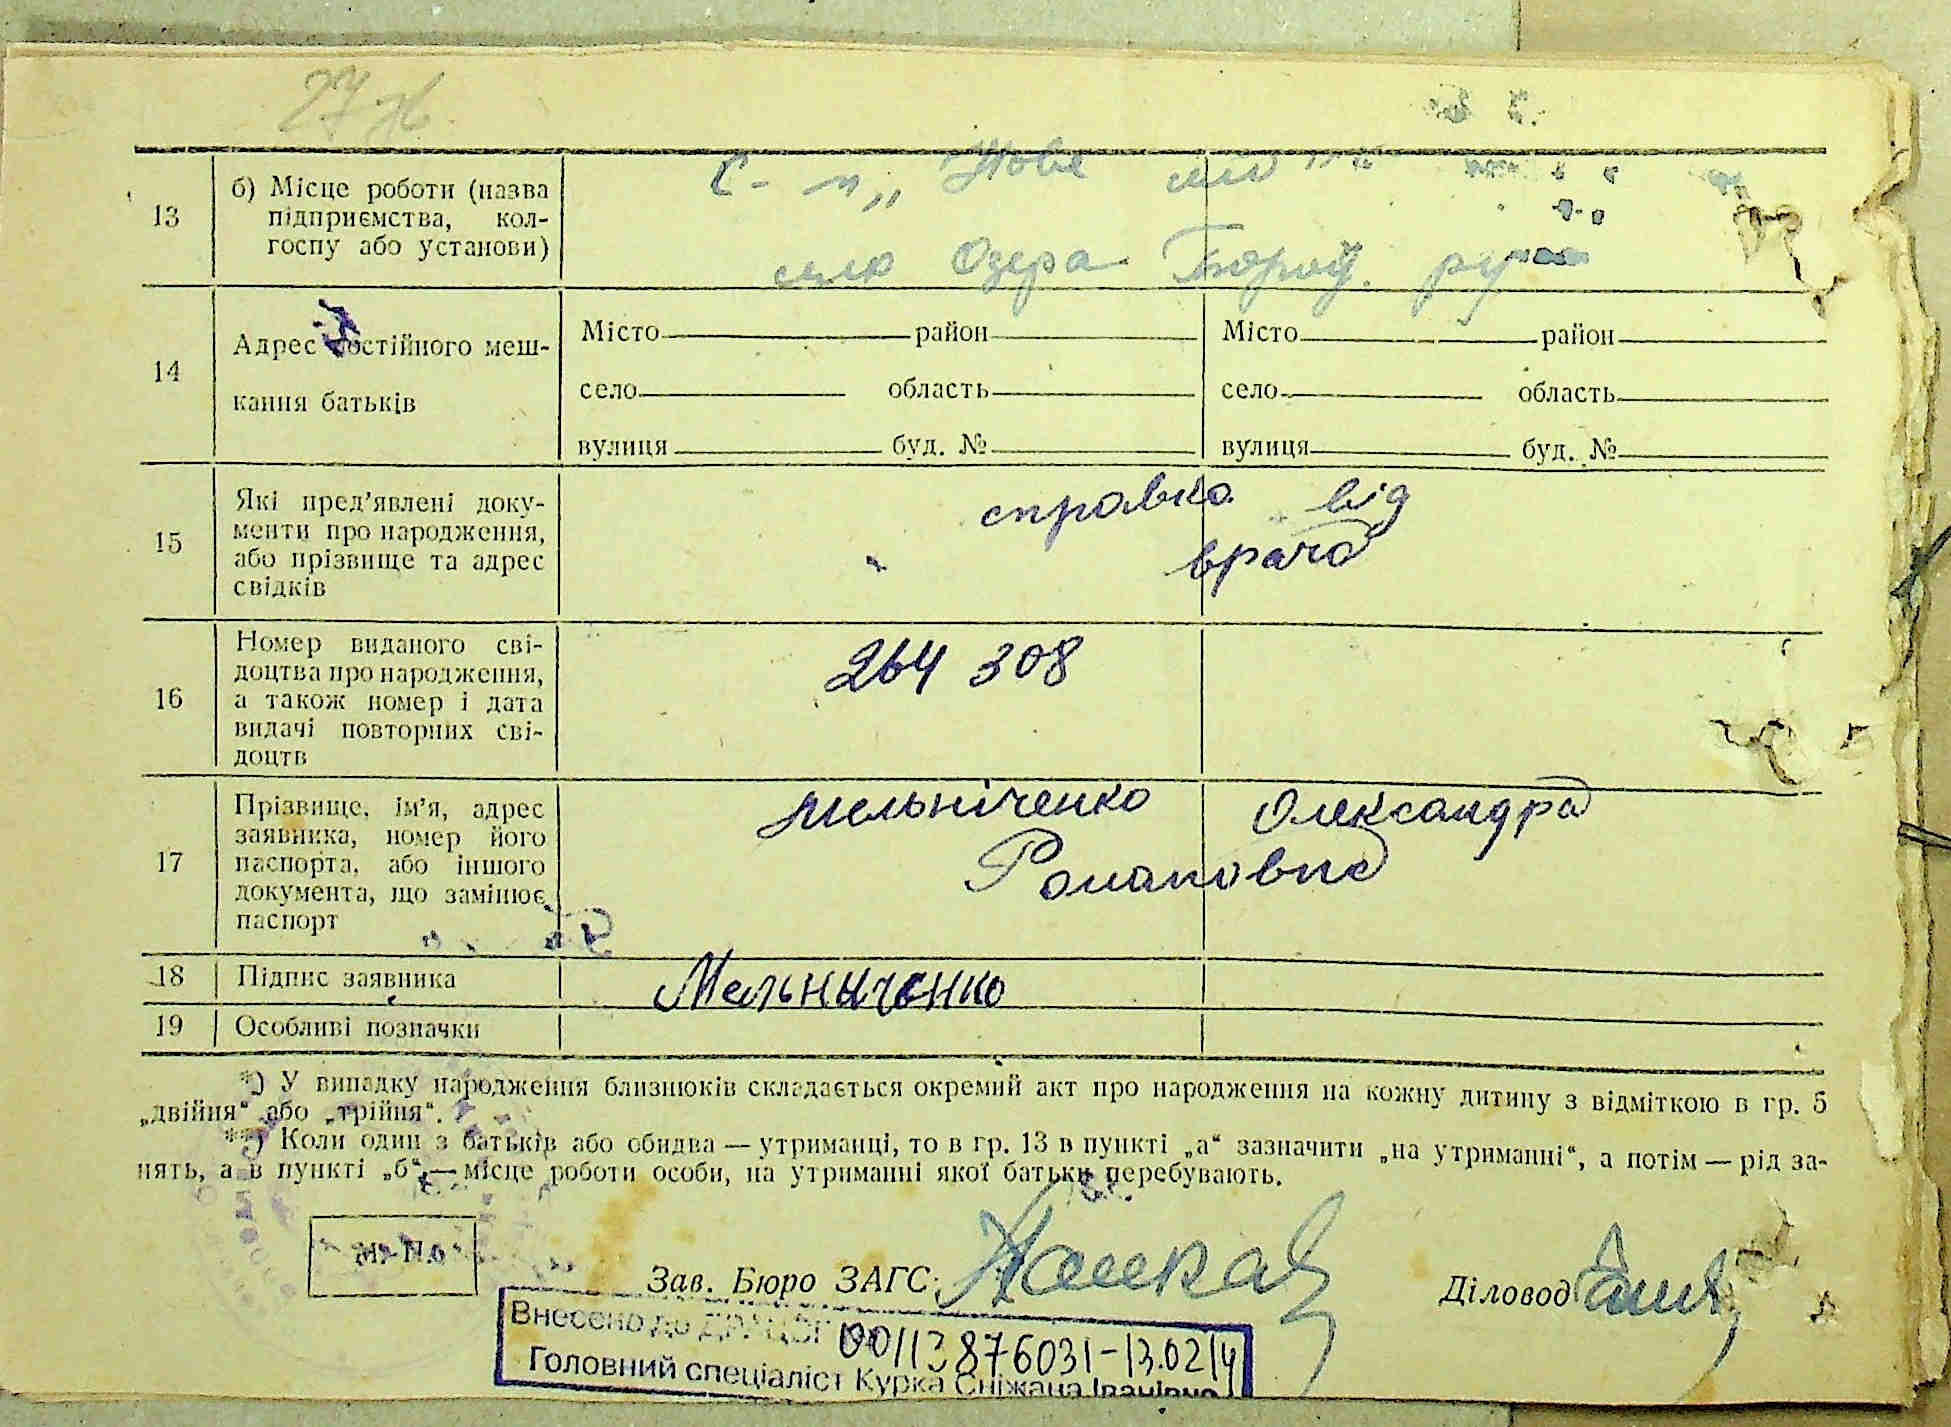 27 ж
13
б) Місце роботи (назва
підприємства, кол-
госпу або установи)
с-п „Нове
село Озера Бород. р
14
Адрес постійного меш-
кання батьків
Місто район
село область
вулиця буд. №
Місто район
село область
вулиця буд. №
15
Які пред’явлені доку-
менти про народження,
або прізвище та адрес
свідків
справка від
врача
16
Номер виданого сві-
доцтва про народження,
а також номер і дата
видачі повторних сві-
доцтв
264 308
17
Прізвище, ім’я, адрес
заявника, номер його
паспорта, або іншого
документа, що замінює
паспорт
Мельніченко Олександра
Романовна
18
Підпис заявника
Мельниченко
19
Особливі позначки
*) У випадку народження близнюків складається окремий акт про народження на кожну дитину з відміткою в гр. 5
„двійня“ або „трійня“.
**) Коли один з батьків або обидва — утриманці, то в гр. 13 в пункті „а“ зазначити „на утриманні“, а потім — рід за-
нять, а в пункті „б“ — місце роботи особи, на утриманні якої батьки перебувають.
М. П.
Зав. Бюро ЗАГС
Діловод
Внесено до ДРАЦСГ № 00113876031-13.02.14
Головний спеціаліст Курка Сніжана Іванівна